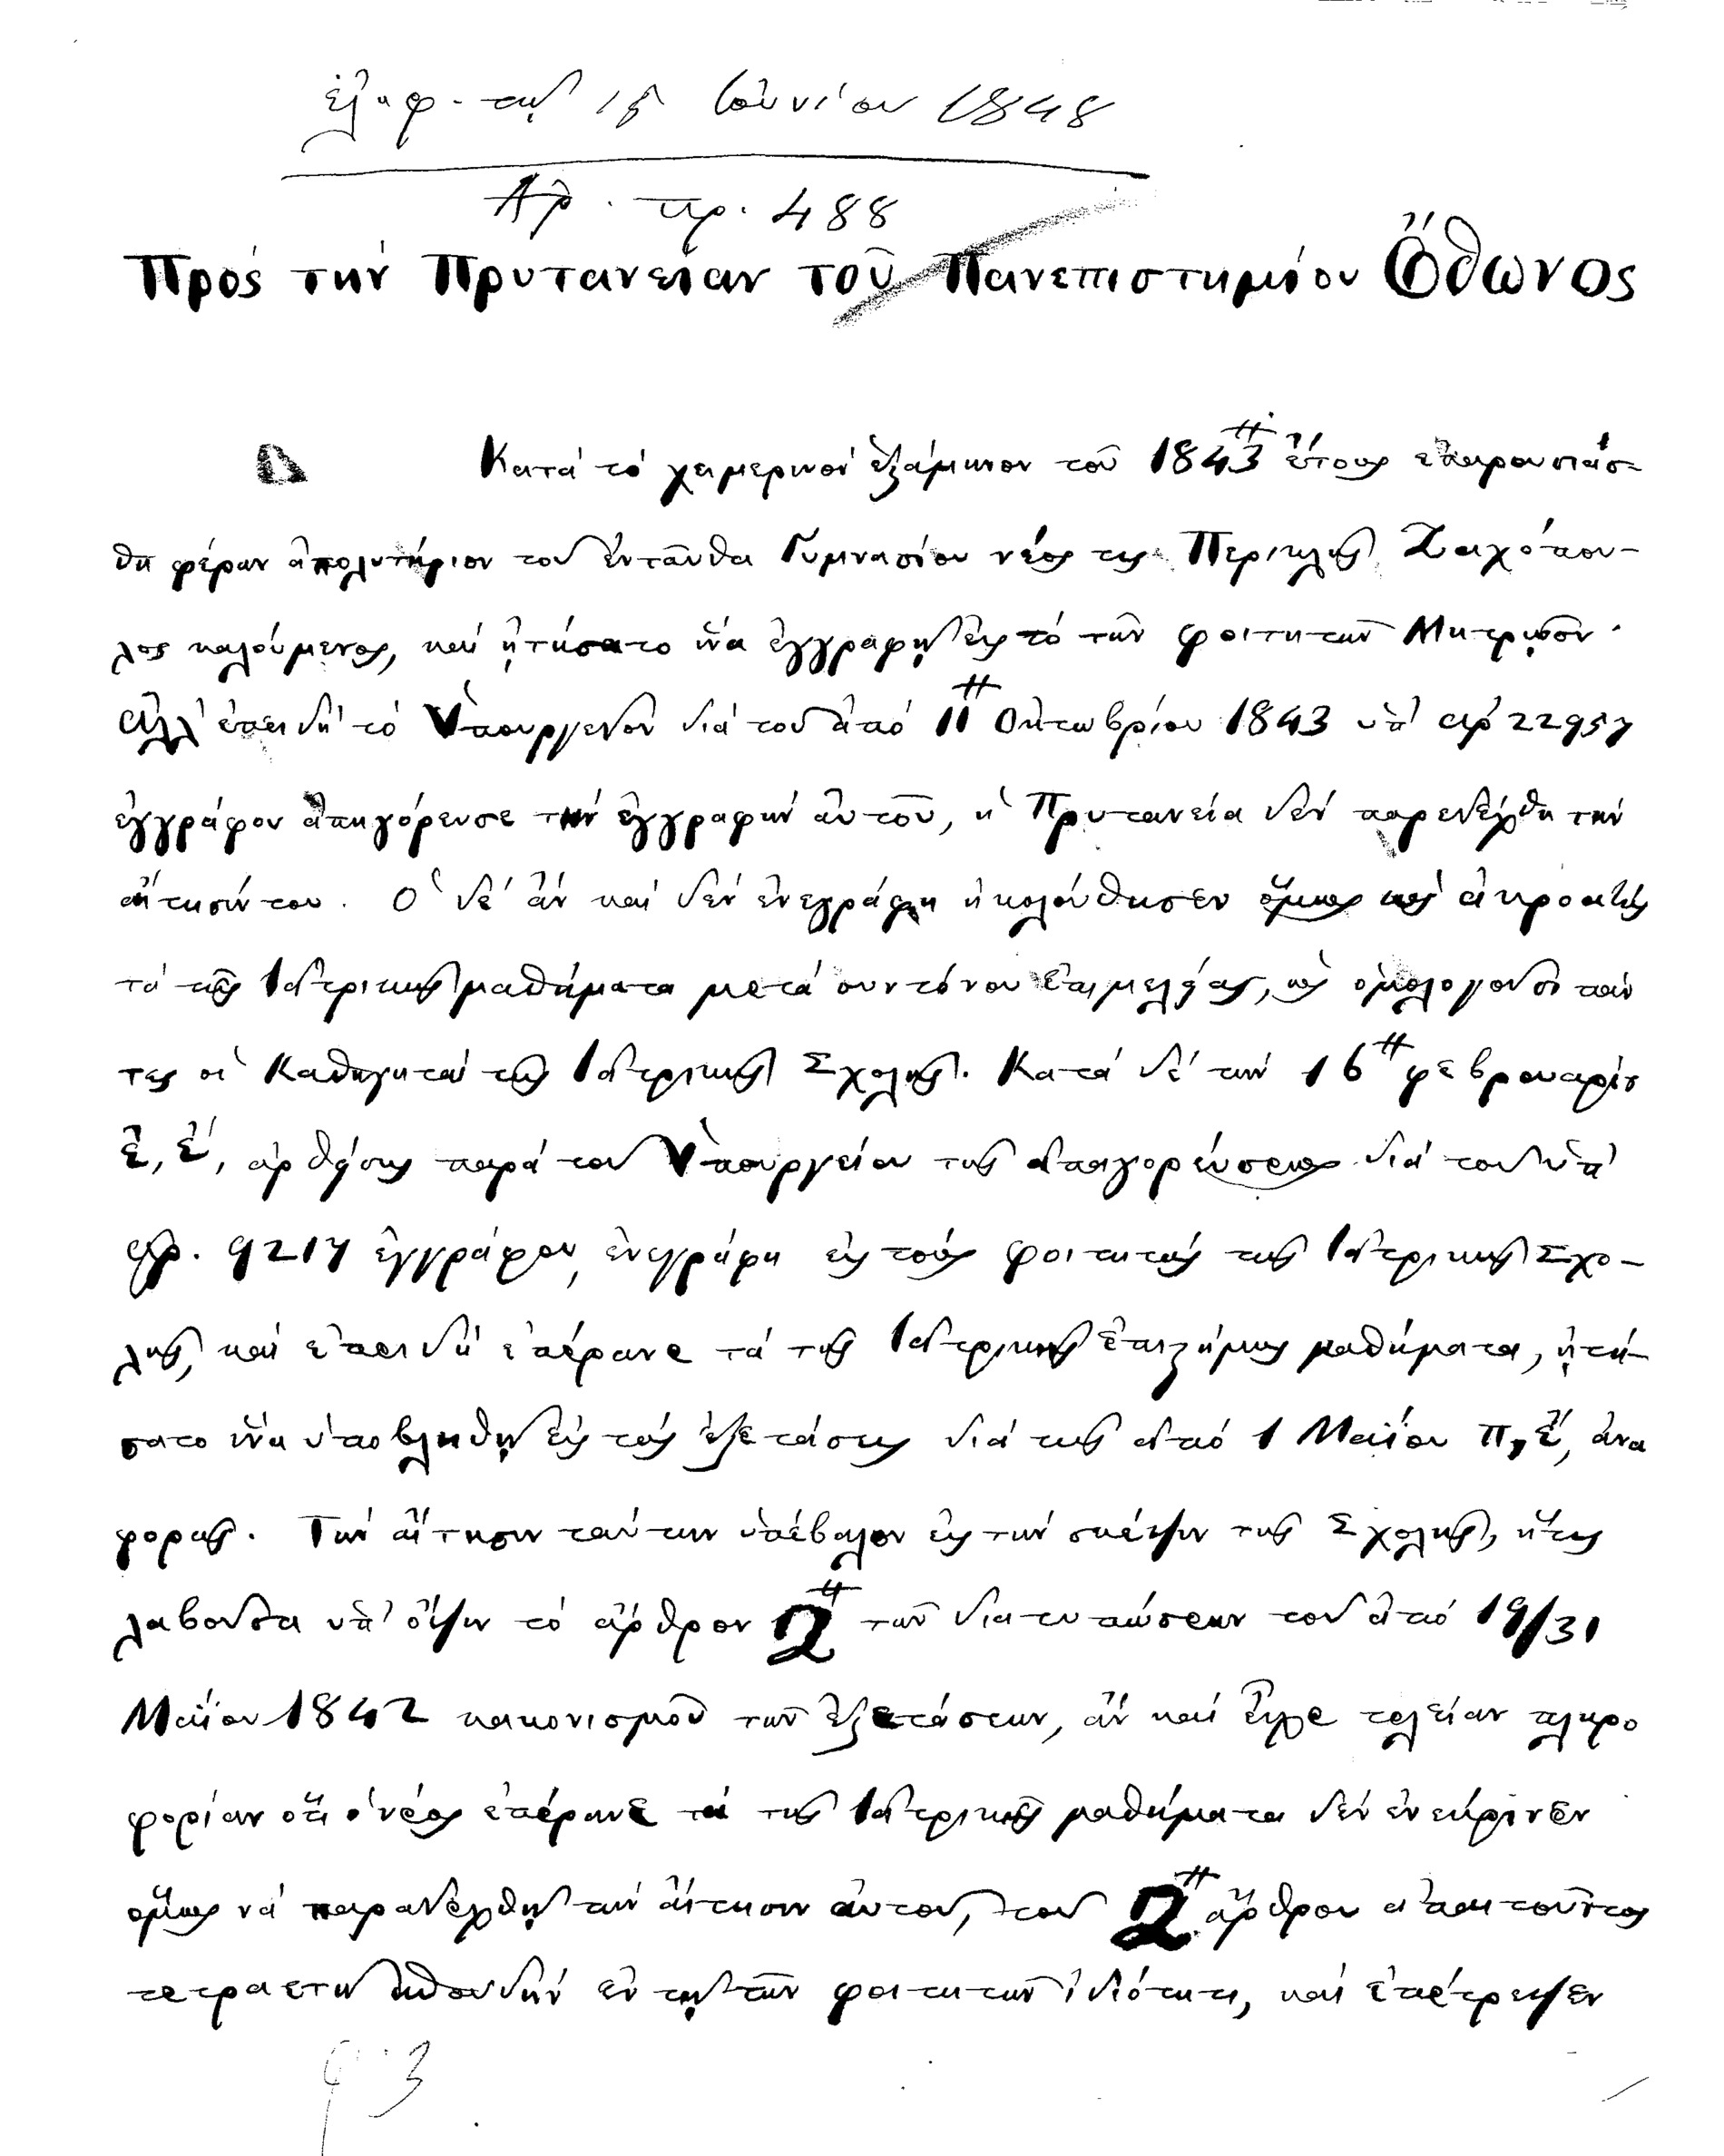 ἐλήφ. τῇ 15 Ἰουνίου 1848
Ἀρ. πρ. 488
Πρὸς τὴν Πρυτανείαν τοῦ Πανεπιστημίου Ὄθωνος
Κατὰ τὸ χειμερινὸν ἑξάμηνον τοῦ 1843 ἔτους ἐπαρουσιάσ-
θη φέρων ἀπολυτήριον τοῦ ἐνταῦθα Γυμνασίου νέος τις Περικλῆς Ζαχόπου-
λος καλούμενος, καὶ ᾐτήσατο ἵνα ἐγγραφῇ εἰς τὸ τῶν φοιτητῶν Μητρῷον·
Ἀλλ' ἐπειδὴ τὸ Ὑπουργεῖον διὰ τοῦ ἀπὸ 11 Ὀκτωβρίου 1843 ὑπ' ἀρ 22957
ἐγγράφου ἀπηγόρευσε τὴν ἐγγραφὴν αὐτοῦ, ἡ Πρυτανεία δὲν παρεδέχθη τὴν
αἴτησίν του. Ὁ δὲ ἂν καὶ δὲν ἐνεγράφη ἠκολούθησεν ὅμως ὡς ἀκροατὴς
τὰ τῆς Ἰατρικῆς μαθήματα μετὰ συντόνου ἐπιμελείας, ὡς ὁμολογοῦσι πάν
τες οἱ Καθηγηταὶ τῆς Ἰατρικῆς Σχολῆς. Κατὰ δὲ τὴν 16 φεβρουαρίου
ἐ, ἔ, ἀρθείσης παρὰ τοῦ Ὑπουργείου τῆς ἀπαγορεύσεως διὰ τοῦ ὑπ'
ἀρ. 9217 ἐγγράφου, ἐνεγράφη εἰς τοὺς φοιτητὰς τῆς Ἰατρικῆς Σχο-
λῆς, καὶ ἐπειδὴ ἐπέρανε τὰ τῆς Ἰατρικῆς ἐπιστήμης μαθήματα, ᾐτή-
σατο ἵνα ὑποβληθῇ εἰς τὰς ἐξετάσεις διὰ τῆς ἀπὸ 1 Μαΐου π, ἔ, ἀνα
φορᾶς. Τὴν αἴτησιν ταύτην ὑπέβαλον εἰς τὴν σκέψιν τῆς Σχολῆς, ἥτις
λαβοῦσα ὑπ' ὄψιν τὸ ἄρθρον 2 τῶν διατυπώσεων τοῦ ἀπὸ 19/31
Μαΐου 1842 κανονισμοῦ τῶν ἐξετάσεων, ἂν καὶ εἶχε τελείαν πληρο
φορίαν ὅτι ὁ νέος ἐπέρανε τὰ τῆς Ἰατρικῆς μαθήματα δὲν ἐνέκρινεν
ὅμως νὰ παραδεχθῇ τὴν αἴτησιν αὐτοῦ, τοῦ 2 ἄρθρου ἀπαιτοῦντος
τετραετῆ σπουδὴν ἐν τῇ τῶν φοιτητῶν ἰδιότητι, καὶ ἐπέτρεψεν